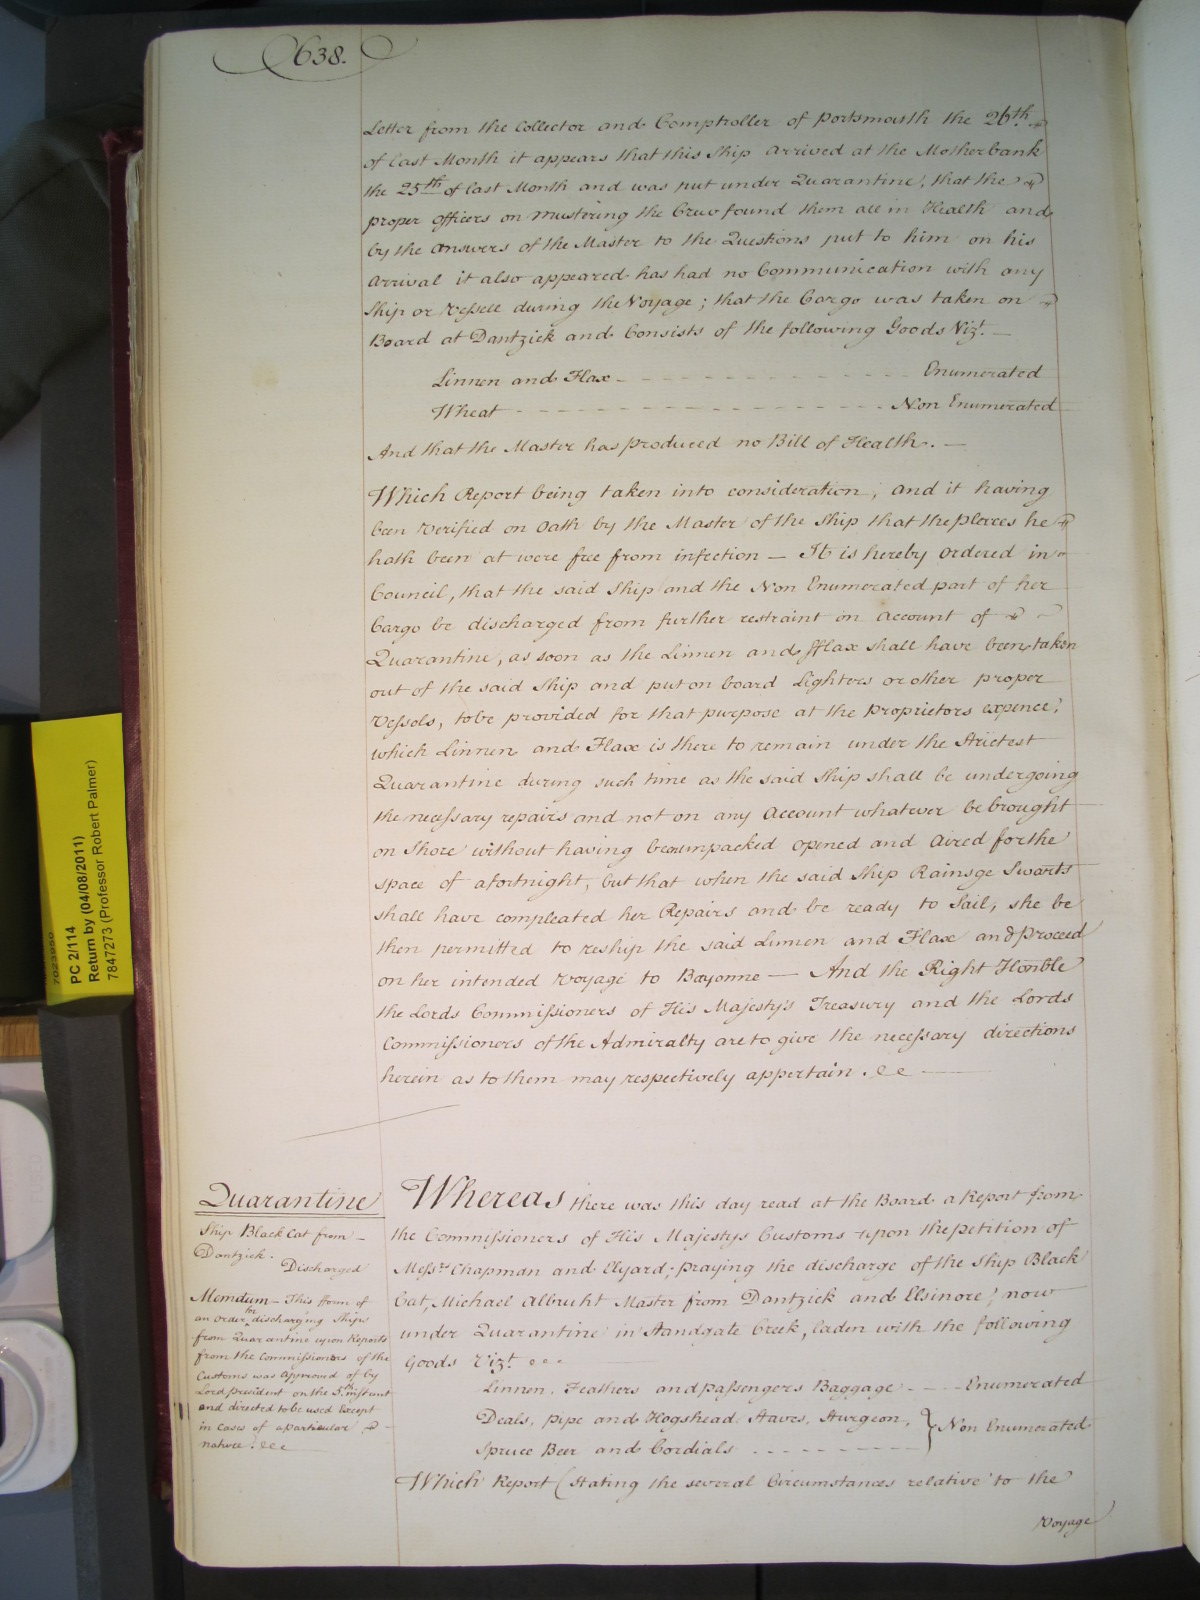 638.
Letter from the Collector and Comptroller of Portsmouth the 26th
of last Month it appears that this Ship arrived at the Motherbank
the 25th of last Month and was put under Quarantine, that the
proper Officers on mustering the Crew found them all in Health and
by the answers of the Master to the Questions put to him on his
Arrival it also appeared has had no Communication with any
Ship or Vessell during the Voyage; that the Cargo was taken on
Board at Dantzick and Consists of the following Goods Vizt. —
Linnen and Flax - - - Enumerated
Wheat - - - Non Enumerated
And that the Master has produced no Bill of Health. —
Which Report being taken into consideration, and it having
been verified on Oath by the Master of the Ship that the places he
hath been at were free from infection — It is hereby ordered in
Council, that the said Ship and the Non Enumerated part of her
Cargo be discharged from further restraint on Account of
Quarantine, as soon as the Linnen and fflax shall have been taken
out of the said Ship and put on board Lighters or other proper
Vessels, to be provided for that purpose at the Proprietors expence,
which Linnen and Flax is there to remain under the Strictest
Quarantine during such time as the said Ship shall be undergoing
the necessary repairs and not on any Account whatever be brought
on Shore without having been unpacked opened and aired for the
space of a fortnight, but that when the said Ship Rainsge Swarts
shall have compleated her Repairs and be ready to Sail, she be
then permitted to reship the said Linnen and Flax and proceed
on her intended Voyage to Bayonne — And the Right Honble
the Lords Commissioners of His Majesty's Treasury and the Lords
Commissioners of the Admiralty are to give the necessary directions
herein as to them may respectively appertain. —
Quarantine
Ship Black Cat from —
Dantzick.
Discharged
Memdum — This fform of
an order for discharging Ships
from Quarantine upon Reports
from the Commissioners of the
Customs was approved of by
Lord President on the 5th instant
and directed to be used Except
in Cases of a particular
nature.
Whereas there was this day read at the Board a Report from
the Commissioners of His Majestys Customs upon the petition of
Messrs Chapman and Elyard, praying the discharge of the Ship Black
Cat, Michael Albruht Master from Dantzick and Elsinore, now
under Quarantine in Standgate Creek, laden with the following
Goods Vizt
Linnen, Feathers and passengers Baggage - - - Enumerated
Deals, pipe and Hogshead Staves, Sturgeon, } Non Enumerated
Spruce Beer and Cordials - - -
Which Report (Stating the several Circumstances relative to the
Voyage
7023950
PC 2/114
Return by (04/08/2011)
7847273 (Professor Robert Palmer)